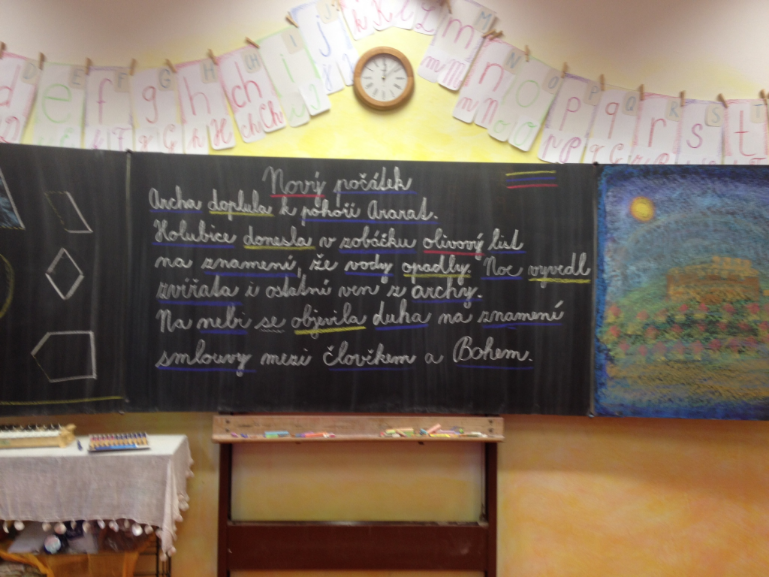 d e f g h ch i j k l m n o p q r s t
Nový počátek
Archa doplula k pohoří Ararat.
Holubice donesla v zobáčku olivový list
na znamení, že vody opadly. Noe vyvedl
zvířata i ostatní ven z archy.
Na nebi se objevila duha na znamení
smlouvy mezi člověkem a Bohem.